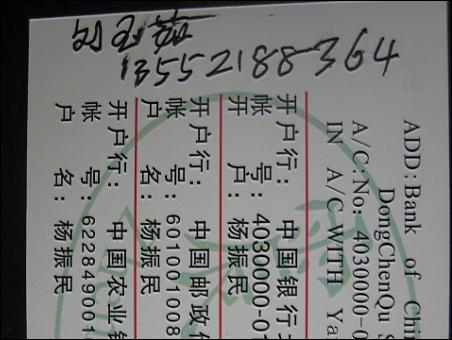 13552188364
ADD:Bank of Chi
DongChenQu S
A/C:No: 4030000-0
IN A/C WITH Ya
开户行: 中国银行
帐 号: 4030000-01
开 户: 杨振民
开户行: 中国邮政
帐 号: 601001008
户 名: 杨振民
开户行: 中国农业
帐 号: 622849001
户 名: 杨振民